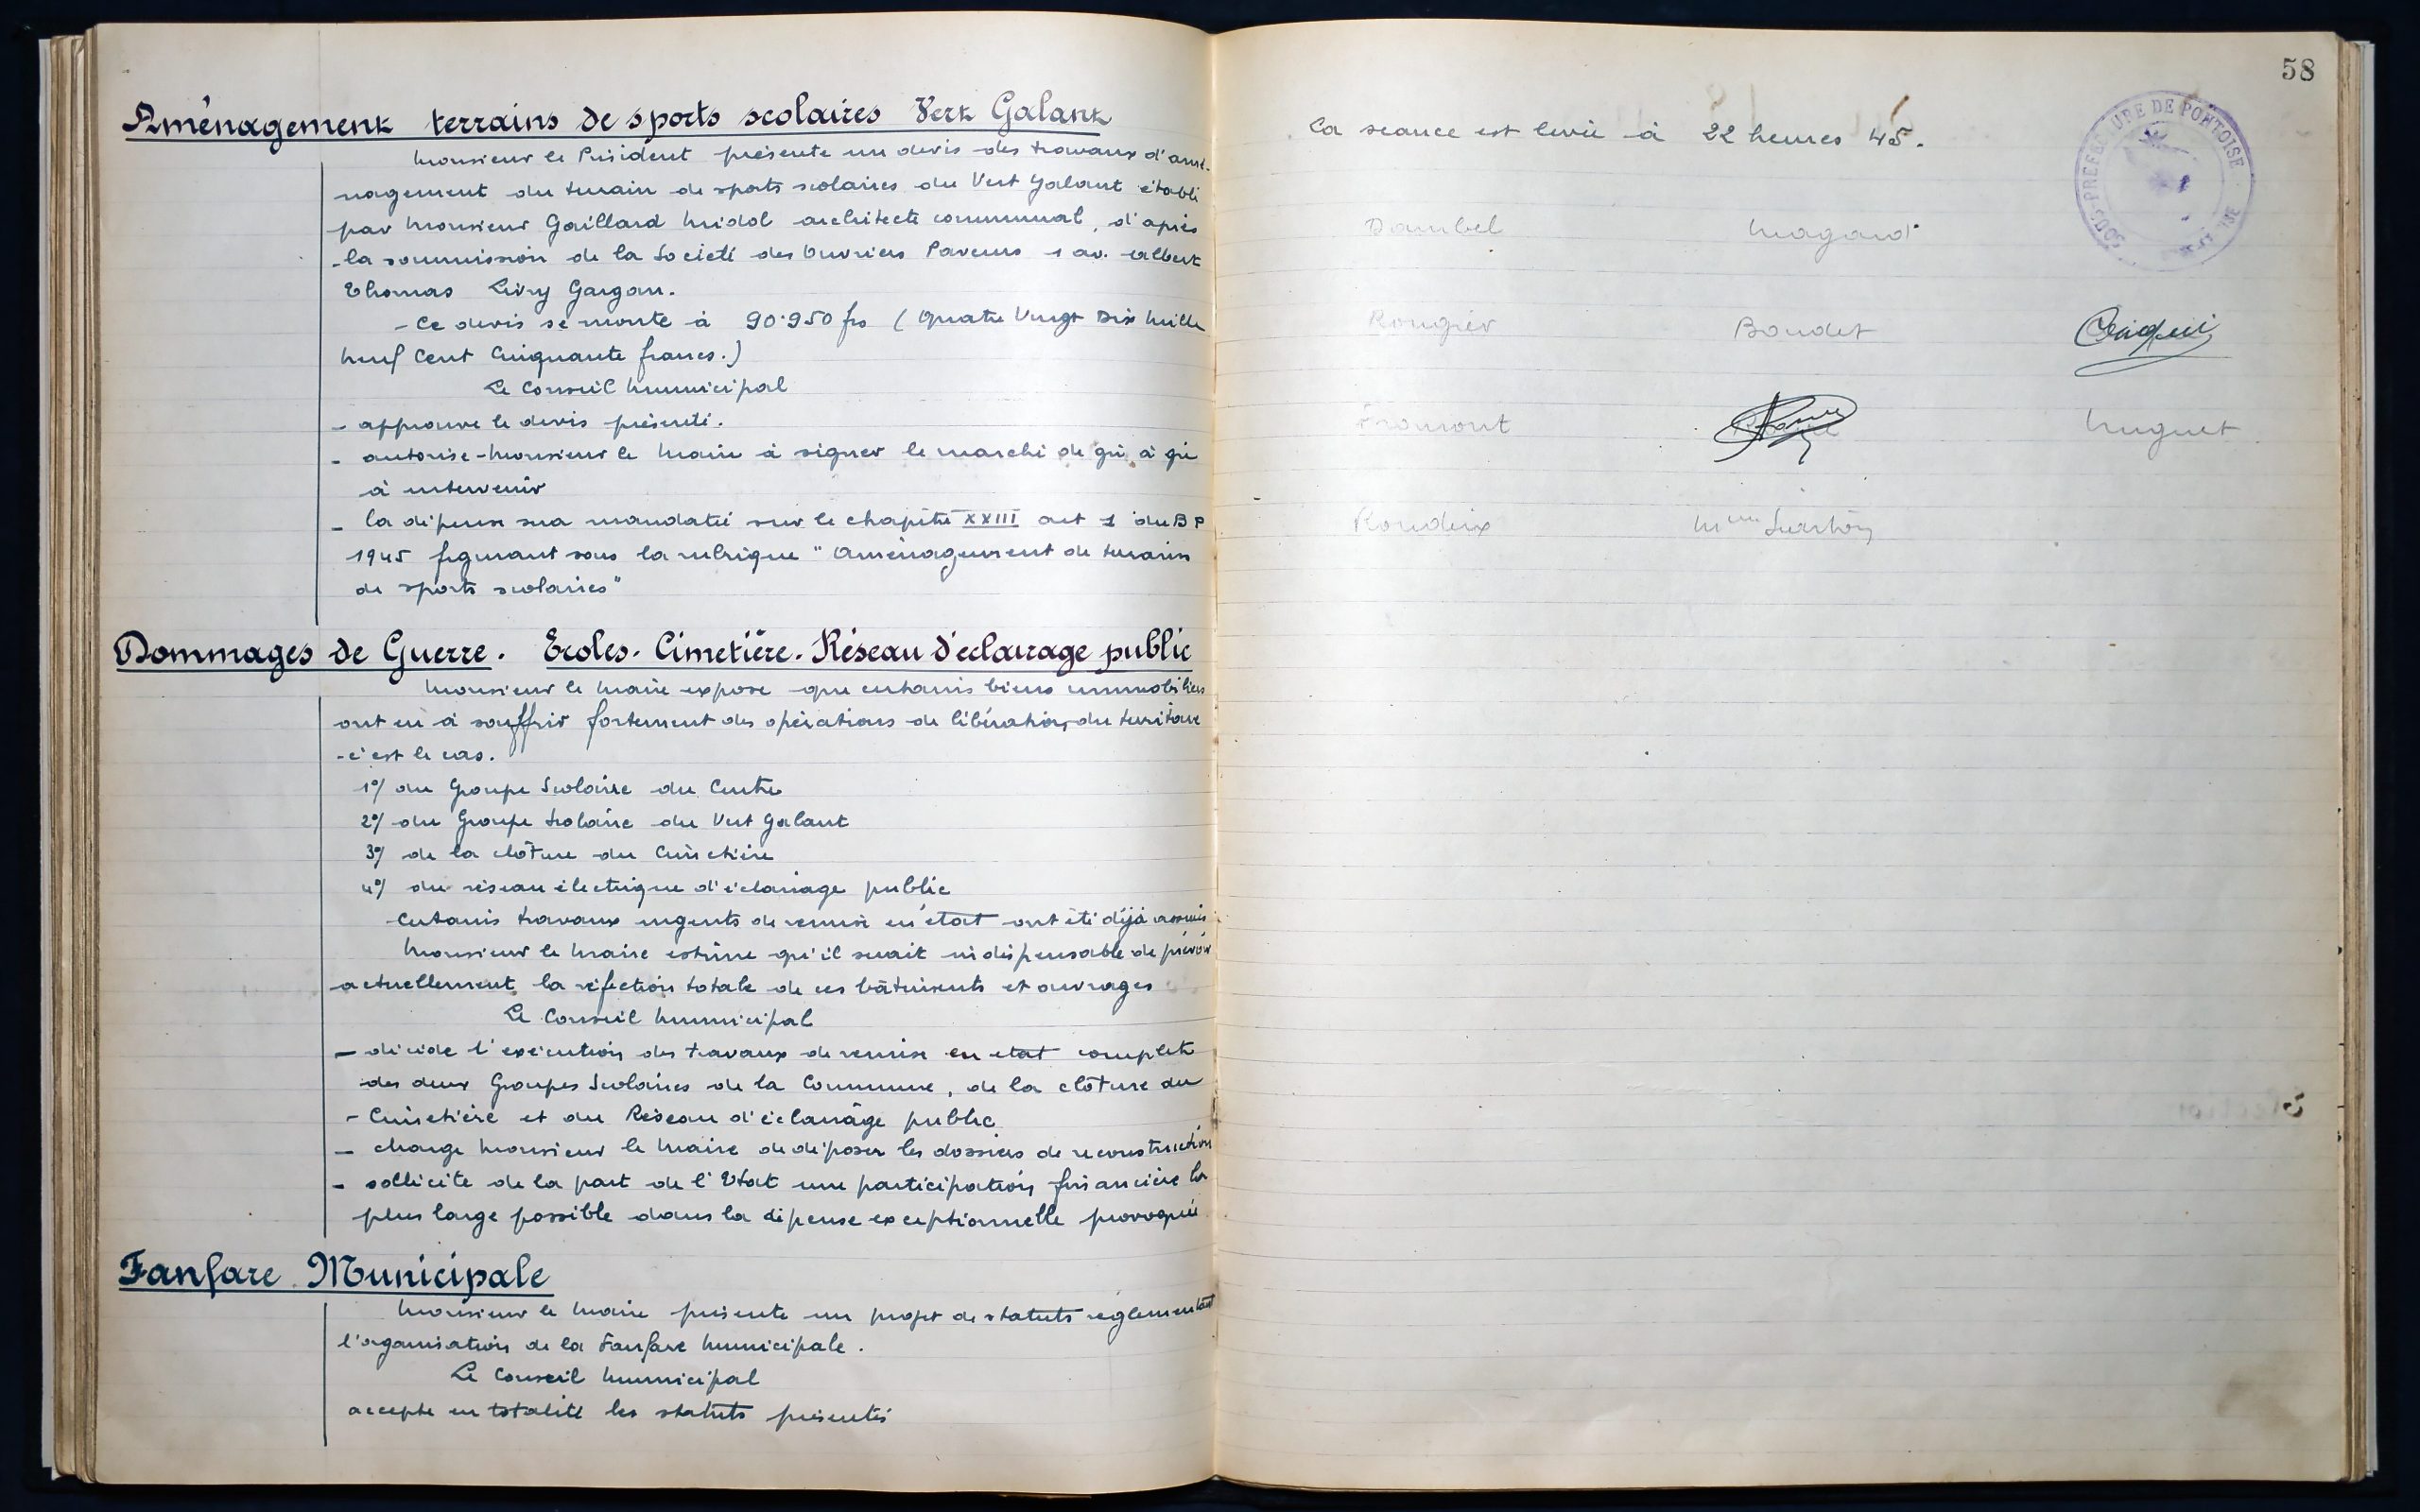 Aménagement terrains de sports scolaires Vert Galant
Monsieur le Président présente un devis des travaux d'amé-
nagement du terrain de sports scolaires du Vert Galant établi
par Monsieur Gaillard Midol architecte communal, d'après
la soumission de la Société des Ouvriers Paveurs 1 av. Albert
Thomas Livry Gargan.
- Ce devis se monte à 90.950 frs (Quatre Vingt Dix Mille
Neuf Cent Cinquante francs.)
Le Conseil Municipal
- approuve le devis présenté.
- autorise Monsieur le Maire à signer le marché de gré à gré
à intervenir
- la dépense sera mandatée sur le chapitre XXIII art 1 du B P
1945 figurant sous la rubrique "Aménagement de terrains
de sports scolaires"
Dommages de Guerre. Ecoles. Cimetière. Réseau d'éclairage public
Monsieur le Maire expose que certains biens immobiliers
ont eu à souffrir fortement des opérations de libération du territoire
c'est le cas.
1°/ du Groupe Scolaire du Centre
2°/ du Groupe Scolaire du Vert Galant
3°/ de la clôture du Cimetière
4°/ du réseau électrique d'éclairage public
Certains travaux urgents de remise en état ont été déjà
Monsieur le Maire estime qu'il serait indispensable de prévoir
actuellement la réfection totale de ces bâtiments et ouvrages
Le Conseil Municipal
- décide l'exécution des travaux de remise en état complète
des deux Groupes Scolaires de la Commune, de la clôture du
Cimetière et du Réseau d'éclairage public
- charge Monsieur le Maire de déposer les dossiers de reconstruction
- sollicite de la part de l'Etat une participation financière la
plus large possible dans la dépense exceptionnelle provoquée
Fanfare Municipale
Monsieur le Maire présente un projet de statuts réglementant
l'organisation de la Fanfare Municipale.
Le Conseil Municipal
accepte en totalité les statuts présentés
58
La séance est levée à 22 heures 45.
SOUS-PREFECTURE DE PONTOISE
Dambel Magard
Rougier Boudet
Fromont Huguet
Roudeix